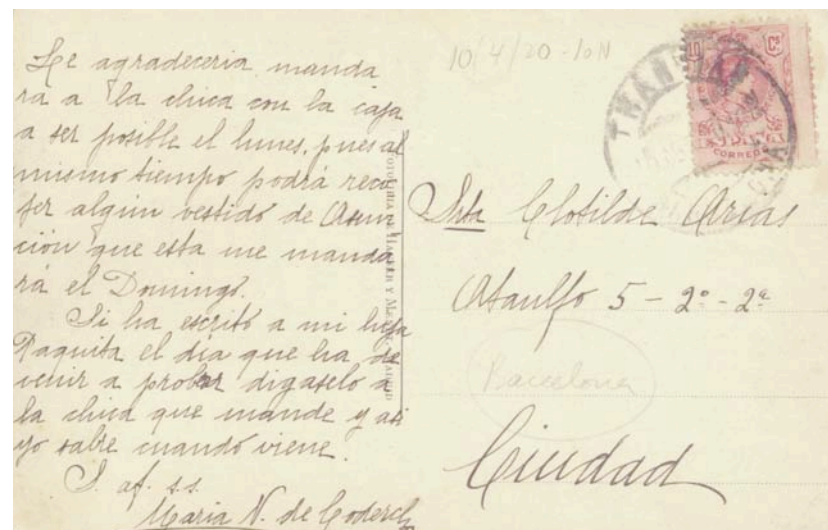 Le agradeceria manda
ra a la chica con la caja
a ser posible el lunes, pues al
mismo tiempo podrá reco
jer algun vestido de Asun
ción que esta me manda
rá el Domingo.
Si ha escrito a mi hija
Paquita el dia que ha de
venir a probar digaselo a
la chica que mande y asi
yo sabre cuando viene.
S. af. s.s.
Maria N. de Coderch
FOTOTIPIA DE HAUSER Y MENET. MADRID
10/4/20-10N
10 Cs
CORREOS
Srta Clotilde Arias
Ataulfo 5 - 2º - 2ª
Barcelona
Ciudad